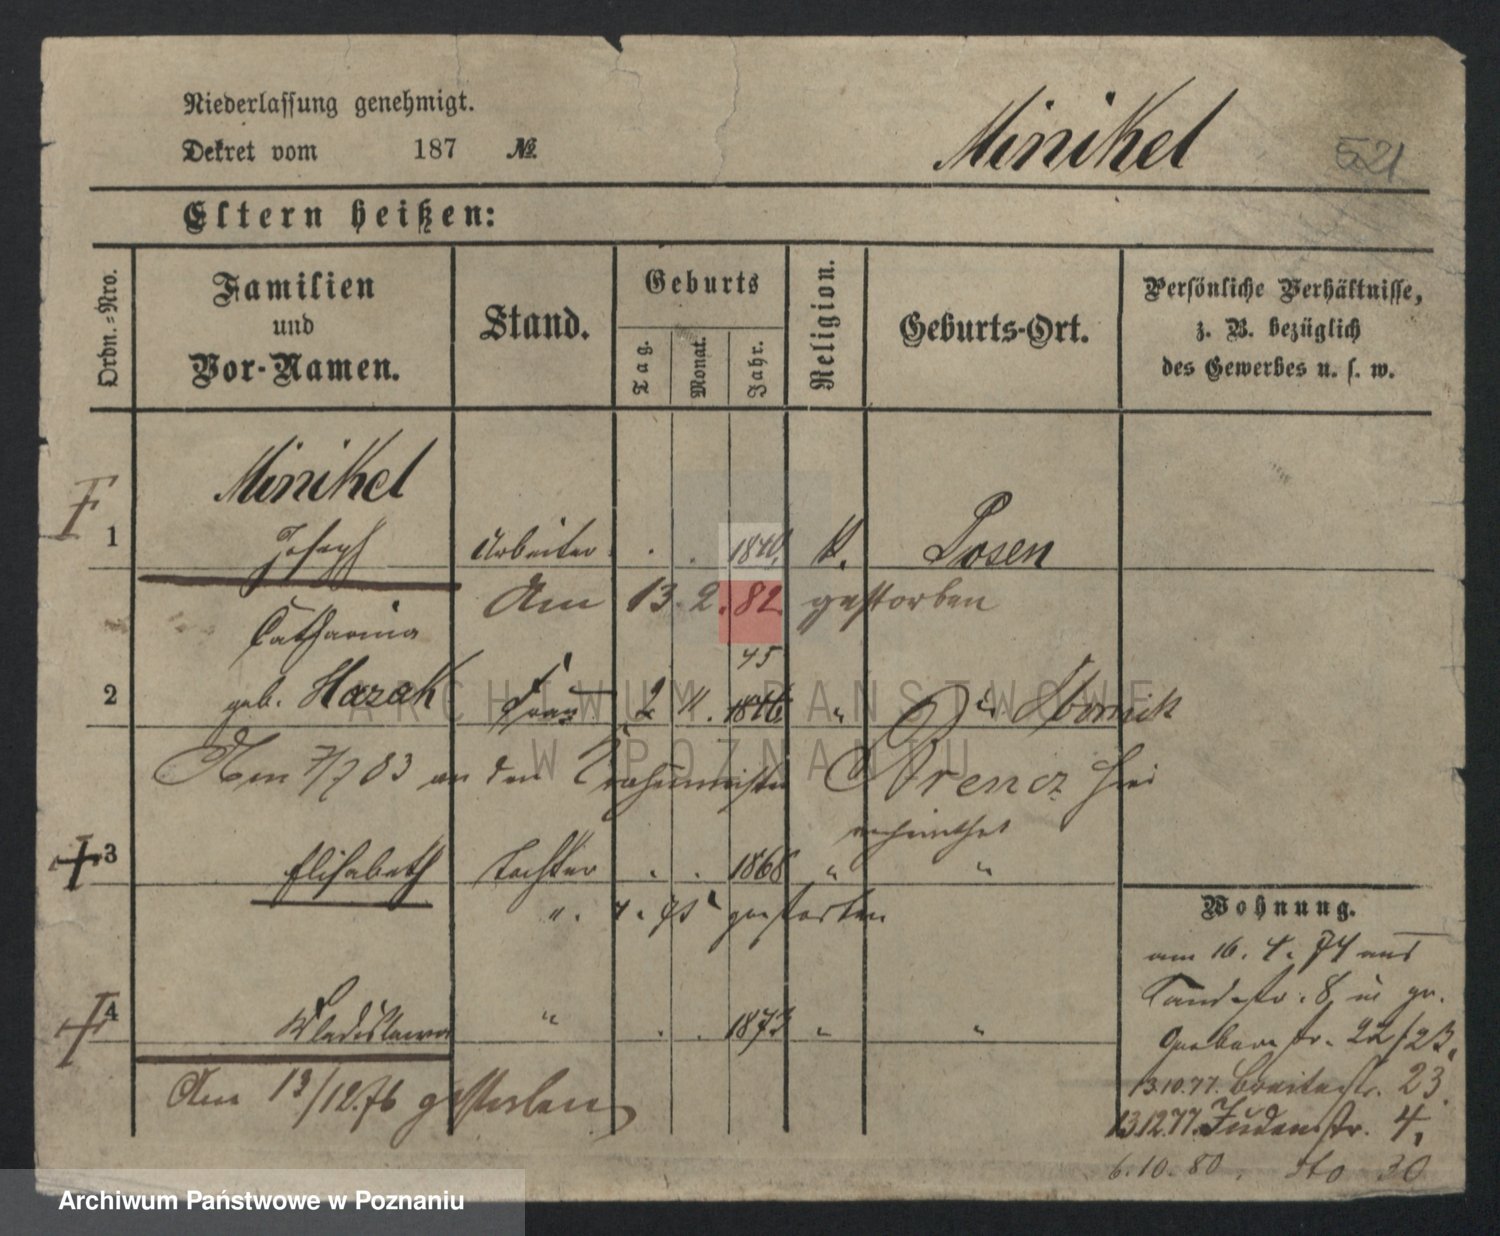 Niederlassung genehmigt.
Dekret vom 187 №
Minikel
521
Eltern heißen:
Ordn.-Nro.
Familien
und
Vor-Namen.
Stand.
Geburts
Tag.
Monat.
Jahr.
Religion.
Geburts-Ort.
Persönliche Verhältnisse,
z. B. bezüglich
des Gewerbes u. s. w.
Minikel
1 Joseph Arbeiter . . 1840. K. Posen
Am 13. 2. 82. gestorben
Catharina
45
2 geb. Hazak Frau 2 11. 1846 "
ARCHIWUM PAŃSTWOWE
W POZNANIU
Am 7/7 83 an den
3 Elisabeth Tochter . . 1868 " "
gestorben
4 Wladislawa " . . 1873 " "
Am 13/12.76 gestorben
Wohnung.
am 16. 4. 74 aus
8 in gr.
Gerberstr. 22/23.
13.10.77. Breitestr. 23.
13.12.77. Judenstr. 4.
6.10.80. dto 30
Archiwum Państwowe w Poznaniu